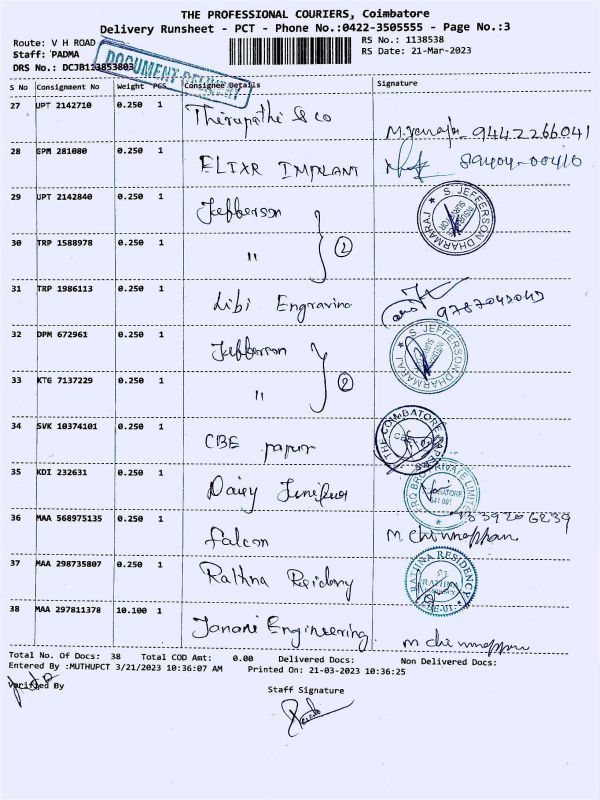 THE PROFESSIONAL COURIERS, Coimbatore
Delivery Runsheet - PCT - Phone No.:0422-3505555 - Page No.:3
Route: V H ROAD
RS No.: 1138538
Staff: PADMA
RS Date: 21-Mar-2023
DRS No.: DCJB113853803
DOCUMENT
S No Consignment No Weight PCS Consignee Details Signature
27 UPT 2142710 0.250 1 Thirupathi & co 9442266041
28 GPM 281080 0.250 1 ELIXR IMPLANT 89404-00410
29 UPT 2142840 0.250 1 Jefferson S. JEFFERSON DHARMARAJ
30 TRP 1588978 0.250 1 " 2
31 TRP 1986113 0.250 1 Libi Engraving
32 DPM 672961 0.250 1 Jefferson S. JEFFERSON DHARMARAJ
33 KTG 7137229 0.250 1 " 2
34 SVK 10374101 0.250 1 CBE paper THE COIMBATORE PAPERS
35 KDI 232631 0.250 1 Daisy PRIVATE LIMITED
36 MAA 568975135 0.250 1 Falcon M. Chinnappan
37 MAA 298735807 0.250 1 Rathna Residency RATHNA RESIDENCY
38 MAA 297811378 10.100 1 Janani Engineering M Chinnappan
Total No. Of Docs: 38 Total COD Amt: 0.00 Delivered Docs: Non Delivered Docs:
Entered By :MUTHUPCT 3/21/2023 10:36:07 AM Printed On: 21-03-2023 10:36:25
Verified By
Staff Signature